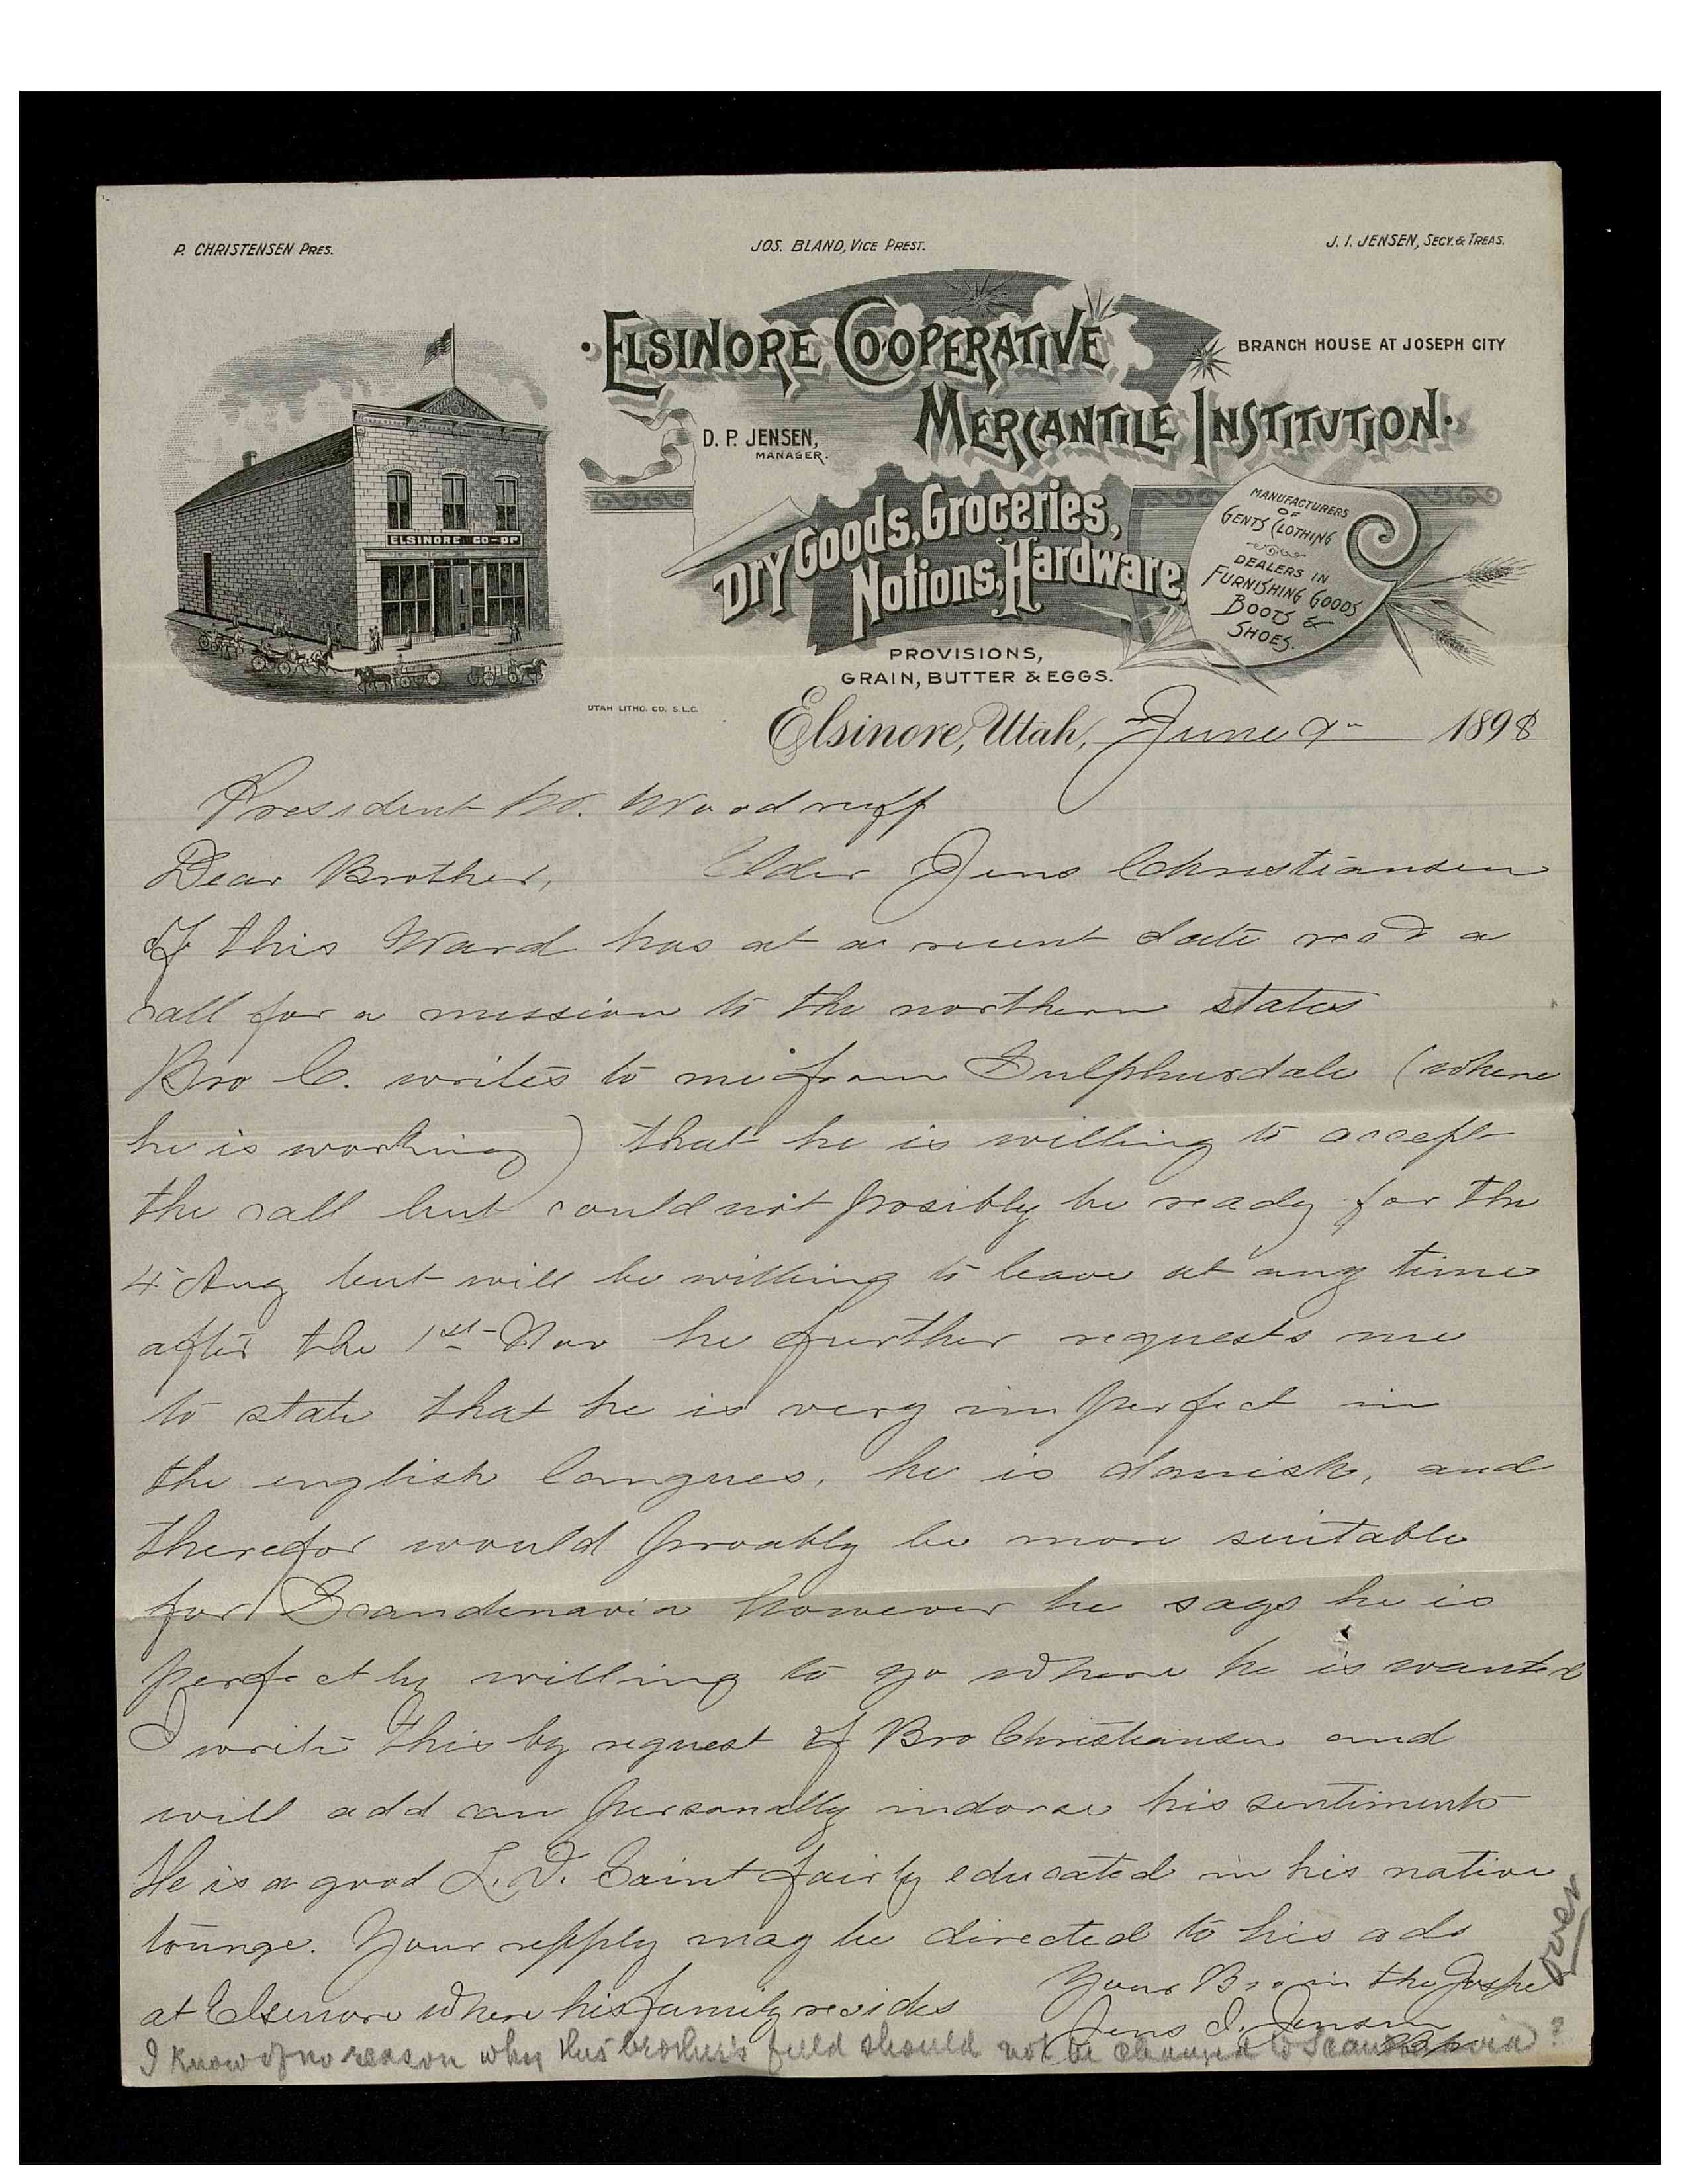 P. CHRISTENSEN PRES.
JOS. BLAND, VICE PREST.
J. I. JENSEN, SECY. & TREAS.
ELSINORE COOPERATIVE
BRANCH HOUSE AT JOSEPH CITY
MERCANTILE INSTITUTION.
D. P. JENSEN,
MANAGER.
ELSINORE CO-OP
Dry Goods, Groceries,
Notions, Hardware,
MANUFACTURERS
OF
GENTS CLOTHING
DEALERS IN
FURNISHING GOODS
BOOTS &
SHOES.
PROVISIONS,
GRAIN, BUTTER & EGGS.
UTAH LITHO. CO. S.L.C.
Elsinore, Utah, June 9 1898
President W. Woodruff
Dear Brother, Elder Jens Christiansen
of this Ward has at a recent date rec'd a
call for a mission to the northern states
Bro C. writes to me from Sulphurdale (where
he is working) that he is willing to accept
the call but could not posibly be ready for the
4 Aug but will be willing to leave at any time
after the 1st Nov he further requests me
to state that he is very imperfect in
the english langues, he is danish, and
therefor would proably be more suitable
for Scandenavia however he says he is
perfectly willing to go where he is wanted
I write this by request of Bro Christiansen and
will add can personally indorse his sentiments
He is a good L. D. Saint fairly educated in his native
tounge. Your repply may be directed to his ads
at Elsenore where his family resides Your Bro in the Gospel
Jens I. Jensen
over
I know of no reason why this brother's field should not be changed to Scandinavia?